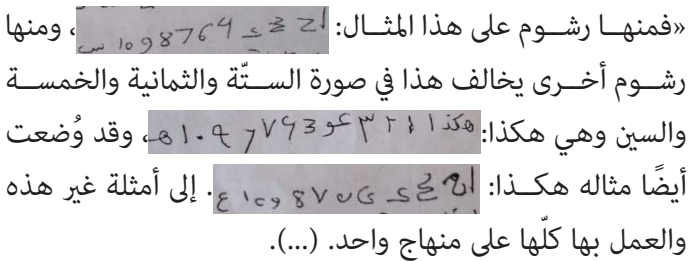 «فمنهــا رشــوم على هذا المثــال: ، ومنها
رشــوم أخــرى يخالف هذا في صورة الســتّة والثمانية والخمســة
والسين وهي هكذا: هكذا ، وقد وُضعت
أيضًا مثاله هكــذا: . إلى أمثلة غير هذه
والعمل بها كلّها على منهاج واحد. (...).